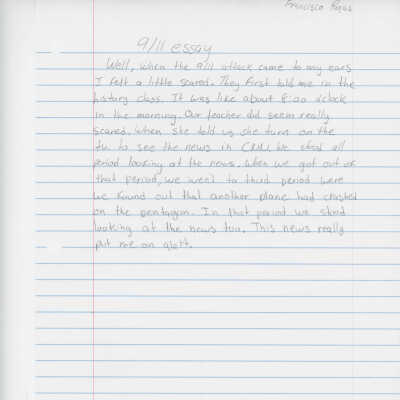 Francisco Rojas
9/11 essay
Well, when the 9/11 attack came to my ears
I felt a little scared. They first told me in the
history class. It was like about 8:00 o'clock
in the morning. Our teacher did seem really
scared, when she told us she turn on the
tv. to see the news in CNN. We stood all
period looking at the news. When we got out of
that period, we went to third period were
we found out that another plane had crashed
on the pentagon. In that period we stood
looking at the news too. This news really
put me on alert.